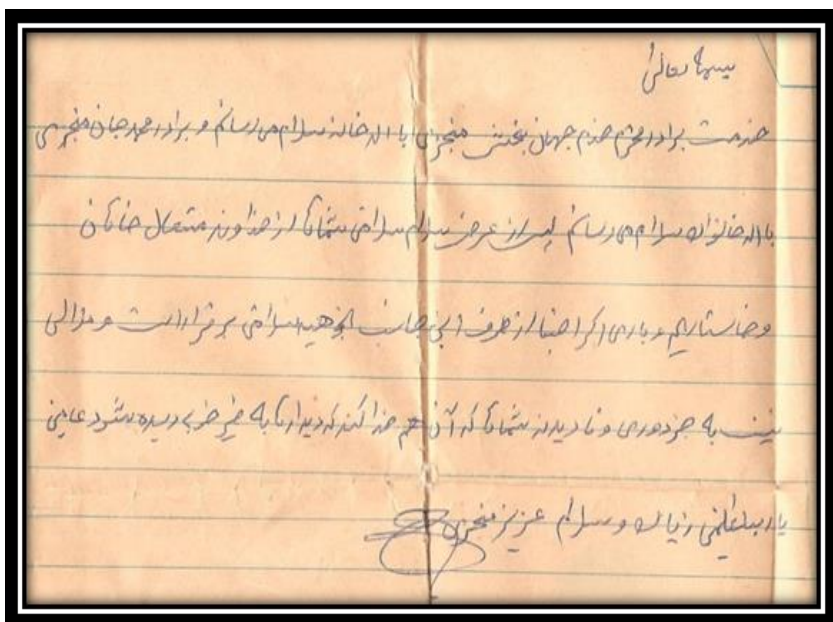 بسمه تعالی
خدمت برادر محترم خودم جهان بخش منجزی با اهل خانه سلام می رسانم و برادر محمد جان منجزی
با اهل خانواده سلام می رسانم پس از عرض سلام سلامتی شما را از خداوند متعال خاهان
و خاستاریم و باری اگر اخبار از طرف این جانب بخاهید سلامتی برقرار است و ملالی
نیست به جز دوری و نادیدن شما که آن هم خدا کند که دیدارتا به خیر خوبی دیده شود عامین
یا رب العلمین زیاده و سلام عزیز منجزی